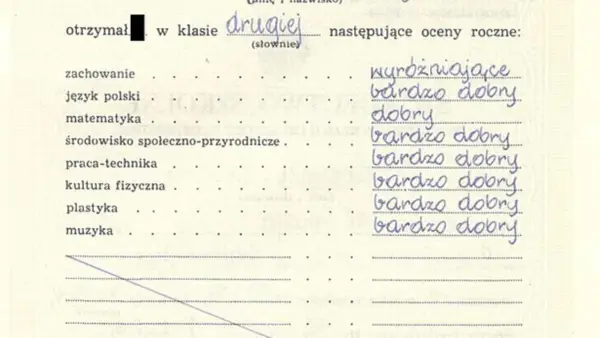 (imię i nazwisko)
otrzymał w klasie drugiej następujące oceny roczne:
(słownie)
zachowanie . . . . . . . . wyróżniające
język polski . . . . . . . . bardzo dobry
matematyka . . . . . . . . dobry
środowisko społeczno-przyrodnicze . . . . bardzo dobry
praca-technika . . . . . . . bardzo dobry
kultura fizyczna . . . . . . . bardzo dobry
plastyka . . . . . . . . bardzo dobry
muzyka . . . . . . . . bardzo dobry